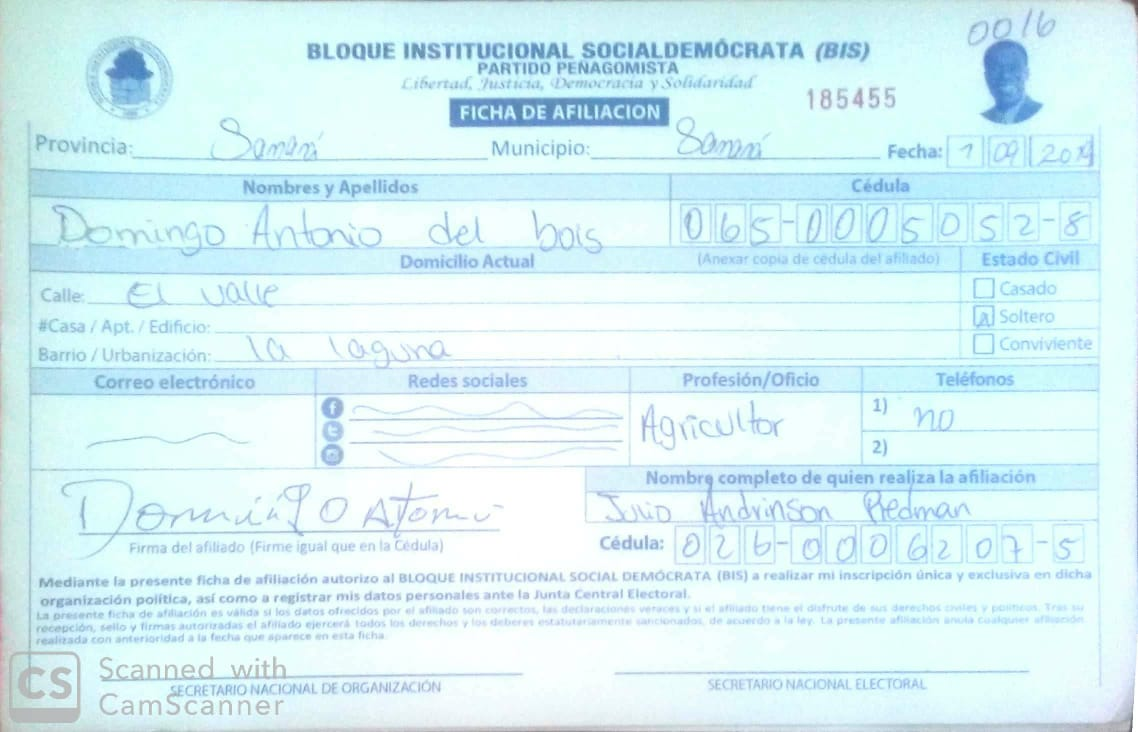 0016
BLOQUE INSTITUCIONAL SOCIALDEMÓCRATA (BIS)
PARTIDO PEÑAGOMISTA
Libertad, Justicia, Democracia y Solidaridad
185455
FICHA DE AFILIACION
Provincia: Samaná Municipio: Samaná Fecha: 1 09 2019
Nombres y Apellidos Cédula
Domingo Antonio del bois 065-0005052-8
Domicilio Actual (Anexar copia de cédula del afiliado) Estado Civil
Calle: El valle Casado
#Casa / Apt. / Edificio: Soltero
Barrio / Urbanización: la laguna Conviviente
Correo electrónico Redes sociales Profesión/Oficio Teléfonos
Agricultor 1) no
2)
Nombre completo de quien realiza la afiliación
Julio Andrinson Redman
Domingo Atonio
Firma del afiliado (Firme igual que en la Cédula) Cédula: 026-0006207-5
Mediante la presente ficha de afiliación autorizo al BLOQUE INSTITUCIONAL SOCIAL DEMÓCRATA (BIS) a realizar mi inscripción única y exclusiva en dicha
organización política, así como a registrar mis datos personales ante la Junta Central Electoral.
La presente ficha de afiliación es válida si los datos ofrecidos por el afiliado son correctos, las declaraciones veraces y si el afiliado tiene el disfrute de sus derechos civiles y políticos. Tras su
recepción, sello y firmas autorizadas el afiliado ejercerá todos los derechos y los deberes estatutariamente sancionados, de acuerdo a la ley. La presente afiliación anula cualquier afiliación
realizada con anterioridad a la fecha que aparece en esta ficha.
SECRETARIO NACIONAL DE ORGANIZACIÓN SECRETARIO NACIONAL ELECTORAL
CS Scanned with
CamScanner